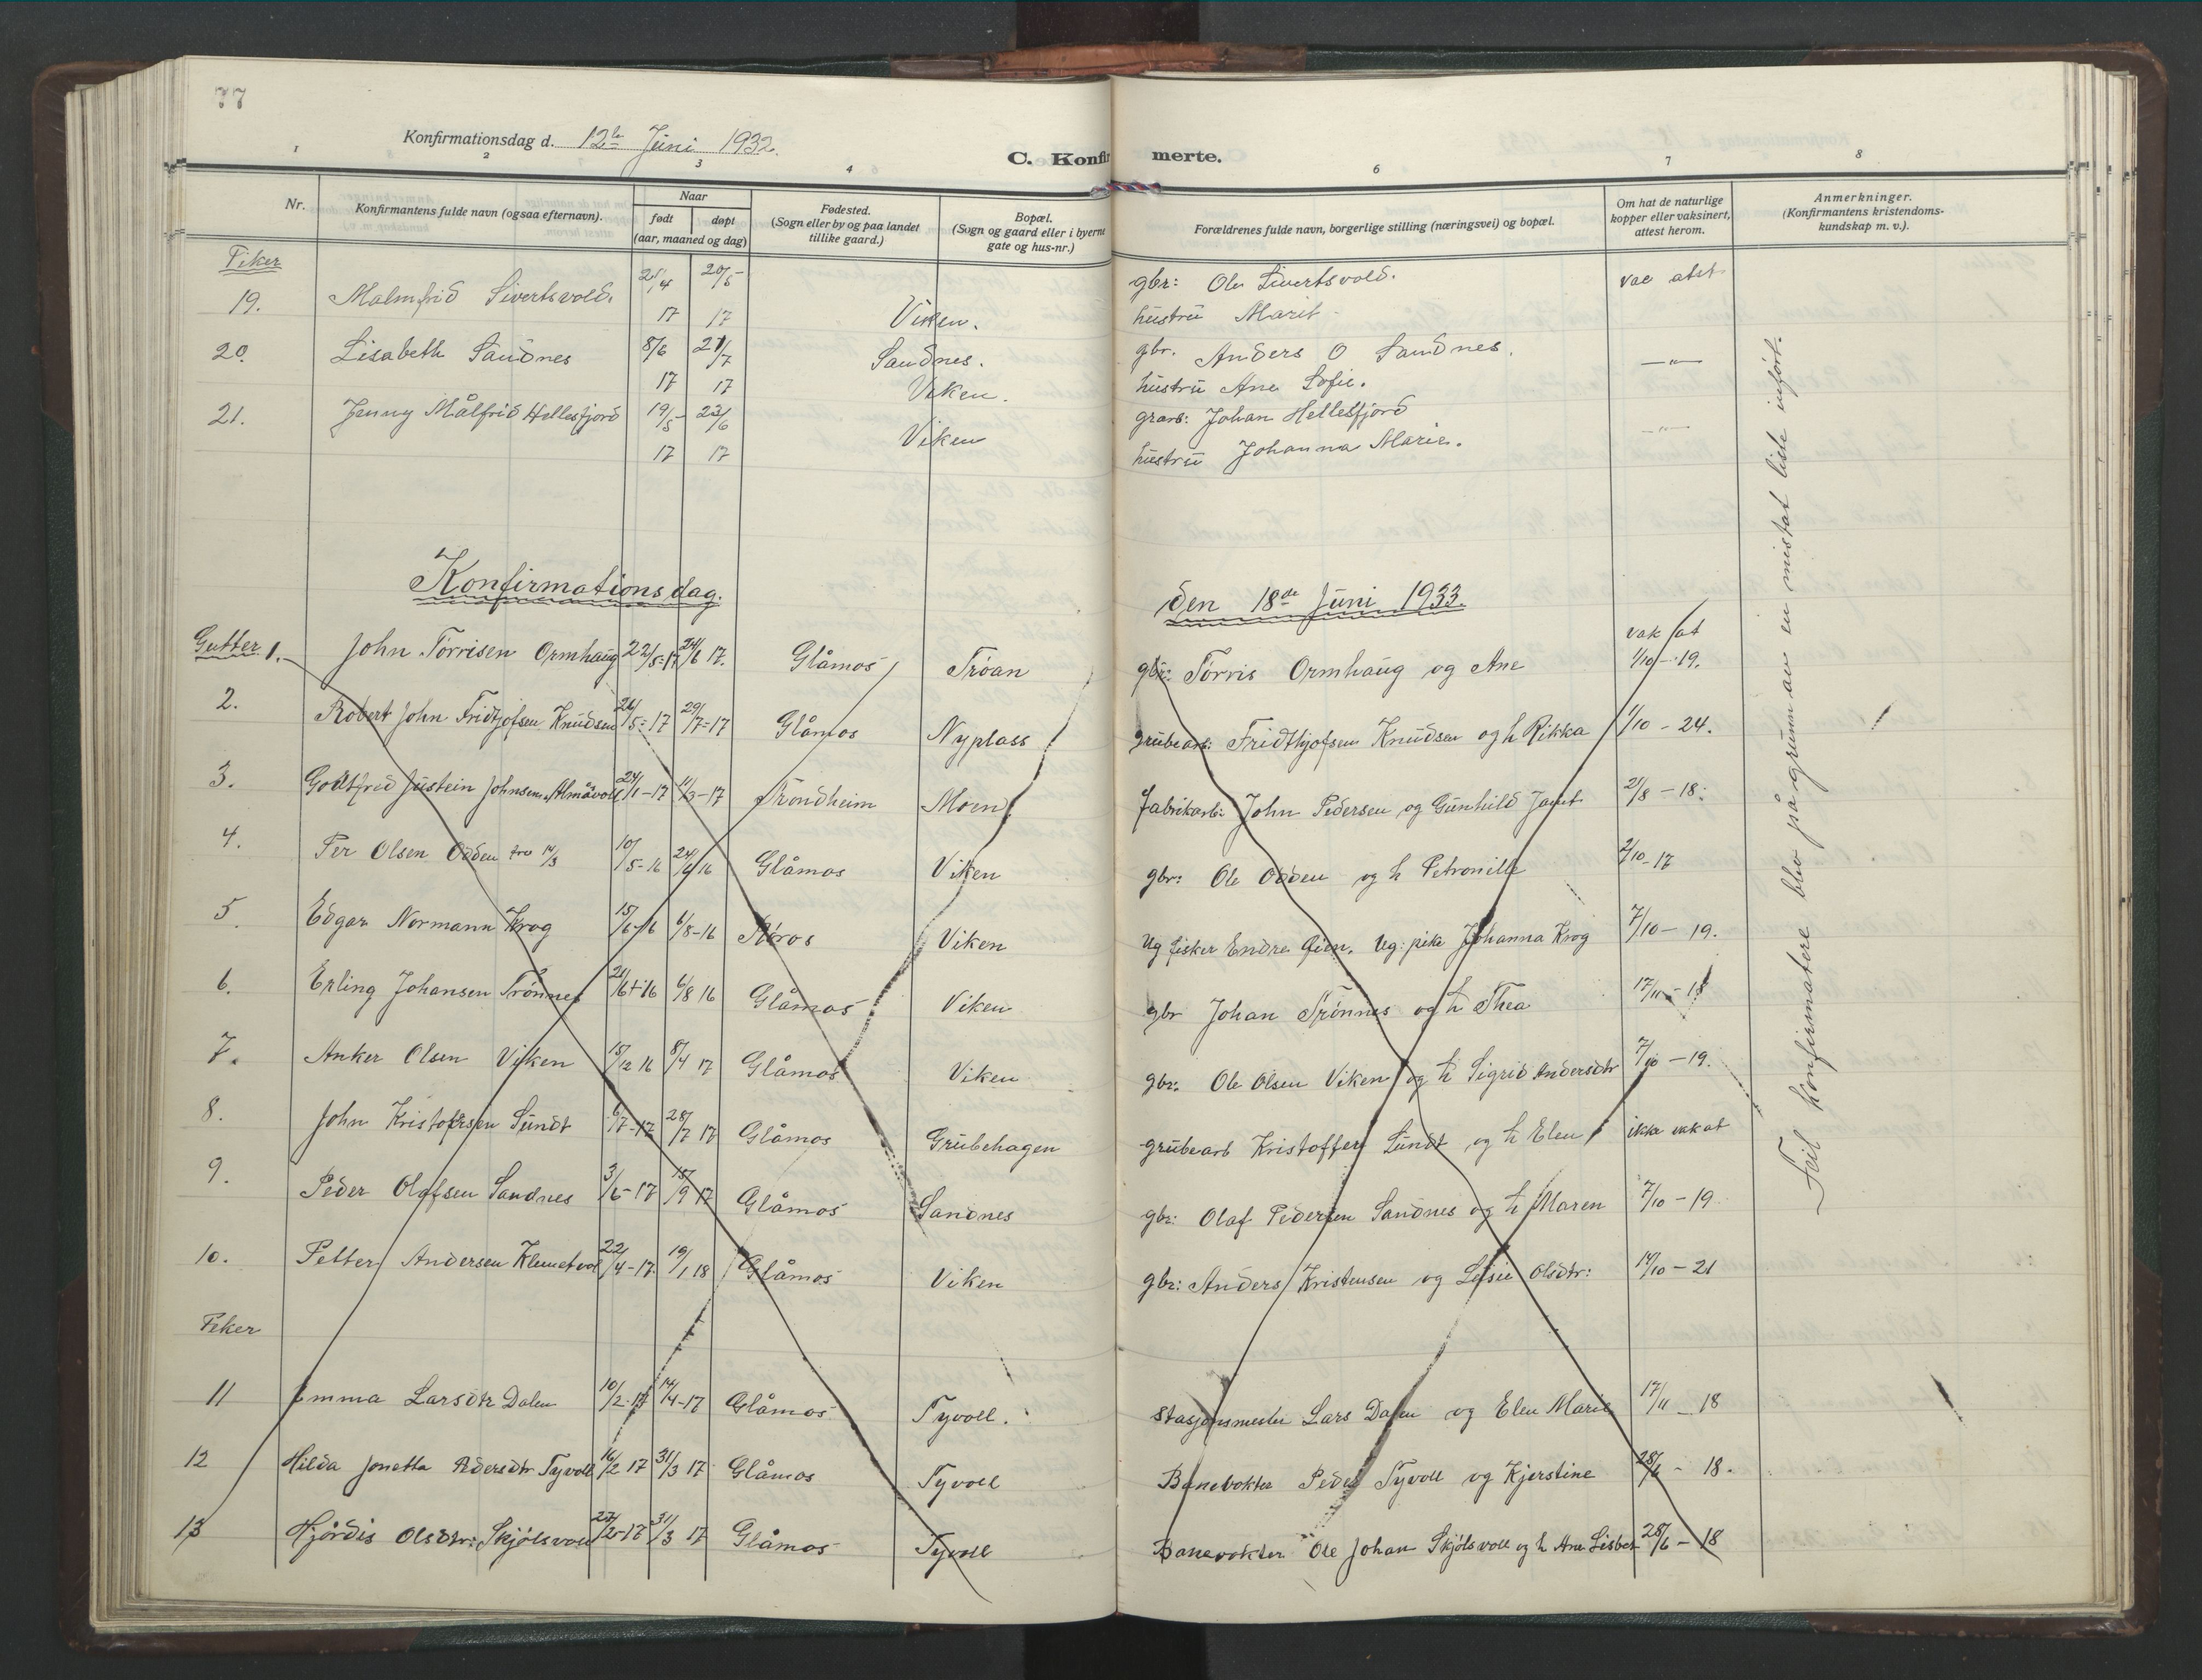 77
Konfirmationsdag d. 12te Juni 1932.
C. Konfirmerte.
1 2 3 4 6 7 8
Nr.
Konfirmantens fulde navn (ogsaa efternavn).
Naar
født døpt
(aar, maaned og dag)
Fødested.
(Sogn eller by og paa landet
tillike gaard.)
Bopæl.
(Sogn og gaard eller i byerne
gate og hus-nr.)
Forældrenes fulde navn, borgerlige stilling (næringsvei) og bopæl.
Om hat de naturlige
kopper eller vaksinert,
attest herom.
Anmerkninger.
(Konfirmantens kristendoms-
kundskap m. v.).
Piker
19. Malmfrid Sivertsvold. 21/4 20/5 gbr: Ole Sivertsvold. vac atst.
17 17 Viken. hustru Marit
20. Lisabeth Sandnes 8/6 21/7 Sandnes. gbr. Anders O Sandnes. —"—
17 17 Viken. hustru Ane Sofie.
21. Jenny Målfrid Hellesfjord 19/5 23/6 Viken grarb: Johan Hellesfjord —"—
17 17 hustru Johanna Marie.
Konfirmationsdag. den 18de Juni 1933.
vak at
Gutter 1. John Torrisen Ormhaug 22/5-17 24/6 17. Glåmos Tröan gbr: Torris Ormhaug og Ane 1/10-19.
2. Robert John Fridtjofsen Knudsen 26/5-17 29/7-17 Glåmos Nyplass grubearb: Fridthjofsen Knudsen og h Rikka 1/10 - 24.
3. Godtfred Justein Johnsen Almåvoll 24/1-17 11/3-17 Trondheim Moen fabrikarb: John Pedersen og Gunhild 2/8 - 18.
4. Per Olsen Odden 14/3 10/5-16 24/6 16 Glåmos Viken gbr: Ole Odden og h Petronille 2/10-17
5. Edgar Normann Krog 15/6-16 6/8-16 Røros Viken Ug fisker Endre Øien. Ug: pike Johanna Krog 7/10 - 19.
6. Erling Johansen Trönnes 21/6-16 6/8 16 Glåmos Viken gbr Johan Trönnes og h Thea 17/11 - 18
7. Anker Olsen Viken 15/12 16 8/4 17 Glåmos Viken gbr. Ole Olsen Viken og h Sigrid Andersdtr 7/10 - 19.
8. John Kristofersen Sundt 6/7-17 28/7 17 Glåmos Grubehagen grubearb Kristoffer Sundt og h Elen ikke vak at
9. Peder Olafsen Sandnes 3/6-17 15/9 17 Glåmos Sandnes gbr: Olaf Pedersen Sandnes og h Maren 7/10 - 19
10. Petter Andersen Klemetvol 22/4-17. 19/1 18 Glåmos Viken gbr: Anders Kristensen og Olsdtr: 14/10 - 21
Piker
11 Emma Larsdtr Dalen 10/2-17 14/4-17 Glåmos Tyvoll. Stasjonsmester Lars Dalen og Elen Marie 17/11 - 18
12 Hilda Jonetta Pedersdtr Tyvoll 16/2 17 31/3 17 Glåmos Tyvoll Banevokter Peder Tyvoll og Kjerstine 28/6 - 18.
13 Hjördis Olsdtr: Skjölsvoll 27/2-17 31/3 17 Glåmos Tyvoll Banevokter Ole Johan Skjölsvoll og h Ane Lisbet 28/6 - 18
Feil konfirmatere blev på grunn av en mistat liste infört.